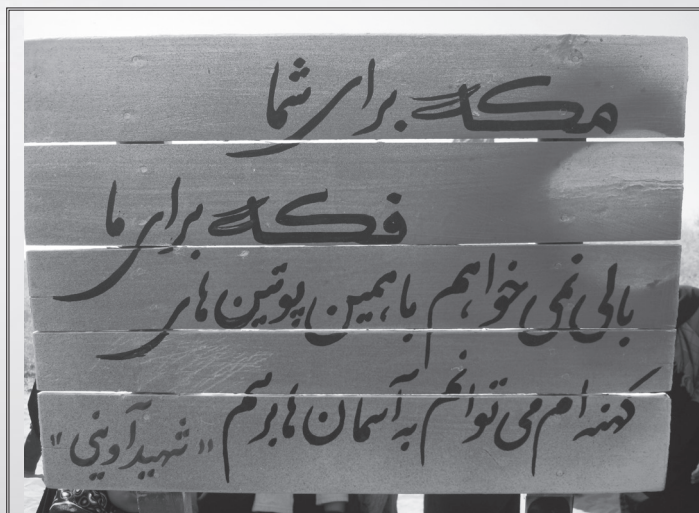 مکه برای شما
فکه برای ما
بالی نمی خواهم با همین پوتین های
کهنه ام می توانم به آسمان ها برسم "شهید آوینی"